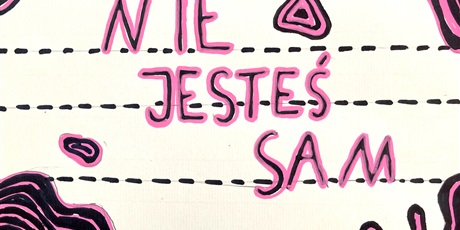 NIE
JESTEŚ
SAM